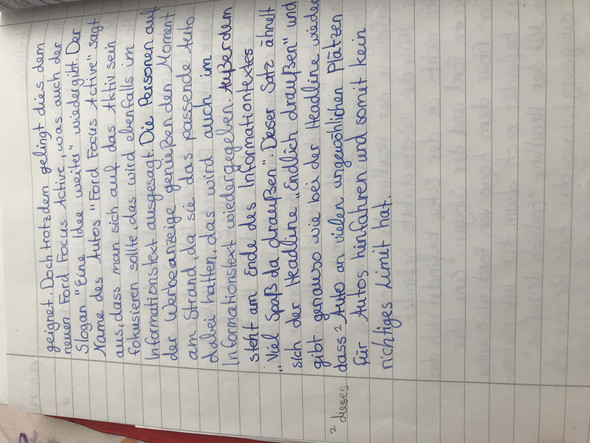 geeignet. Doch trotzdem gelingt dies dem
neuen Ford Focus Active, was auch der
Slogan "Eine Idee weiter" wiedergibt. Der
Name des Autos "Ford Focus Active" sagt
aus, dass man sich auf das Aktiv sein
fokusieren sollte, das wird ebenfalls im
Informationstext ausgesagt. Die Personen auf
der Werbeanzeige genießen den Moment
am Strand, da sie das passende Auto
dabei hatten, das wird auch im
Informationstext wiedergegeben. Außerdem
steht am Ende des Informationtextes
"Viel Spaß da draußen". Dieser Satz ähnelt
sich der Headline „Endlich draußen" und
gibt genauso wie bei der Headline wieder
dass ² Auto an vielen ungewöhnlichen Plätzen
für Autos hinfahren und somit kein
richtiges Limit hat.
² dieses